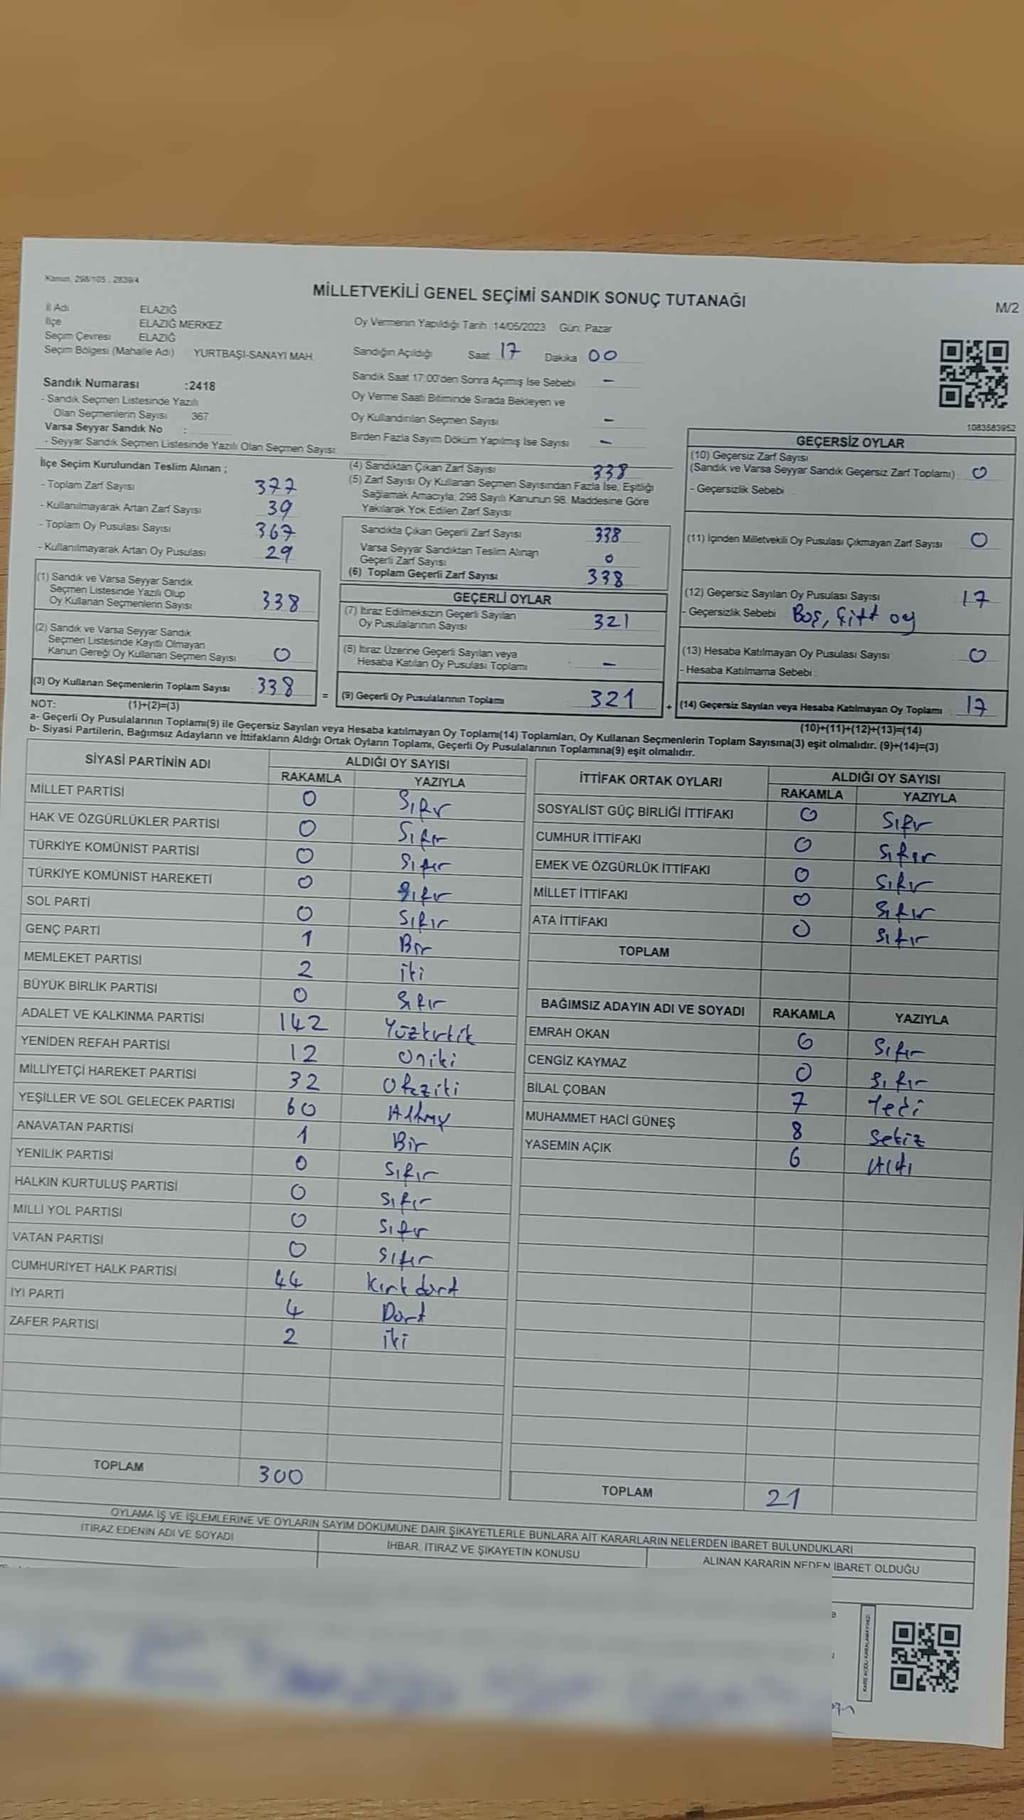 Kanun: 298/105 , 2839/4
MİLLETVEKİLİ GENEL SEÇİMİ SANDIK SONUÇ TUTANAĞI
M/2
İl Adı ELAZIĞ
İlçe ELAZIĞ MERKEZ
Seçim Çevresi ELAZIĞ
Seçim Bölgesi (Mahalle Adı) YURTBAŞI-SANAYİ MAH.
Sandık Numarası :2418
- Sandık Seçmen Listesinde Yazılı
Olan Seçmenlerin Sayısı 367
Varsa Seyyar Sandık No :
- Seyyar Sandık Seçmen Listesinde Yazılı Olan Seçmen Sayısı:
Oy Vermenin Yapıldığı Tarih: 14/05/2023 Gün: Pazar
Sandığın Açıldığı Saat 17 Dakika 00
Sandık Saat 17:00'den Sonra Açımış İse Sebebi –
Oy Verme Saati Bitiminde Sırada Bekleyen ve
Oy Kullandırılan Seçmen Sayısı –
Birden Fazla Sayım Döküm Yapılmış İse Sayısı –
1083583952
İlçe Seçim Kurulundan Teslim Alınan ;
- Toplam Zarf Sayısı 377
- Kullanılmayarak Artan Zarf Sayısı 39
- Toplam Oy Pusulası Sayısı 367
- Kullanılmayarak Artan Oy Pusulası 29
(1) Sandık ve Varsa Seyyar Sandık
Seçmen Listesinde Yazılı Olup
Oy Kullanan Seçmenlerin Sayısı 338
(2) Sandık ve Varsa Seyyar Sandık
Seçmen Listesinde Kayıtlı Olmayan
Kanun Gereği Oy Kullanan Seçmen Sayısı 0
(3) Oy Kullanan Seçmenlerin Toplam Sayısı 338
(4) Sandıktan Çıkan Zarf Sayısı 338
(5) Zarf Sayısı Oy Kullanan Seçmen Sayısından Fazla İse, Eşitliği
Sağlamak Amacıyla, 298 Sayılı Kanunun 98. Maddesine Göre
Yakılarak Yok Edilen Zarf Sayısı
Sandıkta Çıkan Geçerli Zarf Sayısı 338
Varsa Seyyar Sandıktan Teslim Alınan
Geçerli Zarf Sayısı 0
(6) Toplam Geçerli Zarf Sayısı 338
GEÇERLİ OYLAR
(7) İtiraz Edilmeksizin Geçerli Sayılan
Oy Pusulalarının Sayısı 321
(8) İtiraz Üzerine Geçerli Sayılan veya
Hesaba Katılan Oy Pusulası Toplamı : –
= (9) Geçerli Oy Pusulalarının Toplamı 321
GEÇERSİZ OYLAR
(10) Geçersiz Zarf Sayısı
(Sandık ve Varsa Seyyar Sandık Geçersiz Zarf Toplamı) 0
- Geçersizlik Sebebi
(11) İçinden Milletvekili Oy Pusulası Çıkmayan Zarf Sayısı 0
(12) Geçersiz Sayılan Oy Pusulası Sayısı 17
- Geçersizlik Sebebi Boş, Çift oy
(13) Hesaba Katılmayan Oy Pusulası Sayısı 0
- Hesaba Katılmama Sebebi
+ (14) Geçersiz Sayılan veya Hesaba Katılmayan Oy Toplamı 17
NOT: (1)+(2)=(3)
(10)+(11)+(12)+(13)=(14)
a- Geçerli Oy Pusulalarının Toplamı(9) ile Geçersiz Sayılan veya Hesaba katılmayan Oy Toplamı(14) Toplamları, Oy Kullanan Seçmenlerin Toplam Sayısına(3) eşit olmalıdır. (9)+(14)=(3)
b- Siyasi Partilerin, Bağımsız Adayların ve İttifakların Aldığı Ortak Oyların Toplamı, Geçerli Oy Pusulalarının Toplamına(9) eşit olmalıdır.
SİYASİ PARTİNİN ADI ALDIĞI OY SAYISI
RAKAMLA YAZIYLA
MİLLET PARTİSİ 0 Sıfır
HAK VE ÖZGÜRLÜKLER PARTİSİ 0 Sıfır
TÜRKİYE KOMÜNİST PARTİSİ 0 Sıfır
TÜRKİYE KOMÜNİST HAREKETİ 0 Sıfır
SOL PARTİ 0 Sıfır
GENÇ PARTİ 1 Bir
MEMLEKET PARTİSİ 2 iki
BÜYÜK BİRLİK PARTİSİ 0 Sıfır
ADALET VE KALKINMA PARTİSİ 142 Yüzkırkik
YENİDEN REFAH PARTİSİ 12 Oniki
MİLLİYETÇİ HAREKET PARTİSİ 32 Otuziki
YEŞİLLER VE SOL GELECEK PARTİSİ 60 Altmış
ANAVATAN PARTİSİ 1 Bir
YENİLİK PARTİSİ 0 Sıfır
HALKIN KURTULUŞ PARTİSİ 0 Sıfır
MİLLİ YOL PARTİSİ 0 Sıfır
VATAN PARTİSİ 0 Sıfır
CUMHURİYET HALK PARTİSİ 44 Kırkdört
İYİ PARTİ 4 Dört
ZAFER PARTİSİ 2 iki
TOPLAM 300
İTTİFAK ORTAK OYLARI ALDIĞI OY SAYISI
RAKAMLA YAZIYLA
SOSYALİST GÜÇ BİRLİĞİ İTTİFAKI 0 Sıfır
CUMHUR İTTİFAKI 0 Sıfır
EMEK VE ÖZGÜRLÜK İTTİFAKI 0 Sıfır
MİLLET İTTİFAKI 0 Sıfır
ATA İTTİFAKI 0 Sıfır
TOPLAM
BAĞIMSIZ ADAYIN ADI VE SOYADI RAKAMLA YAZIYLA
EMRAH OKAN 0 Sıfır
CENGİZ KAYMAZ 0 Sıfır
BİLAL ÇOBAN 7 Yedi
MUHAMMET HACI GÜNEŞ 8 Sekiz
YASEMİN AÇIK 6 Altı
TOPLAM 21
OYLAMA İŞ VE İŞLEMLERİNE VE OYLARIN SAYIM DÖKÜMÜNE DAİR ŞİKAYETLERLE BUNLARA AİT KARARLARIN NELERDEN İBARET BULUNDUKLARI
İTİRAZ EDENİN ADI VE SOYADI İHBAR, İTİRAZ VE ŞİKAYETİN KONUSU ALINAN KARARIN NEDEN İBARET OLDUĞU